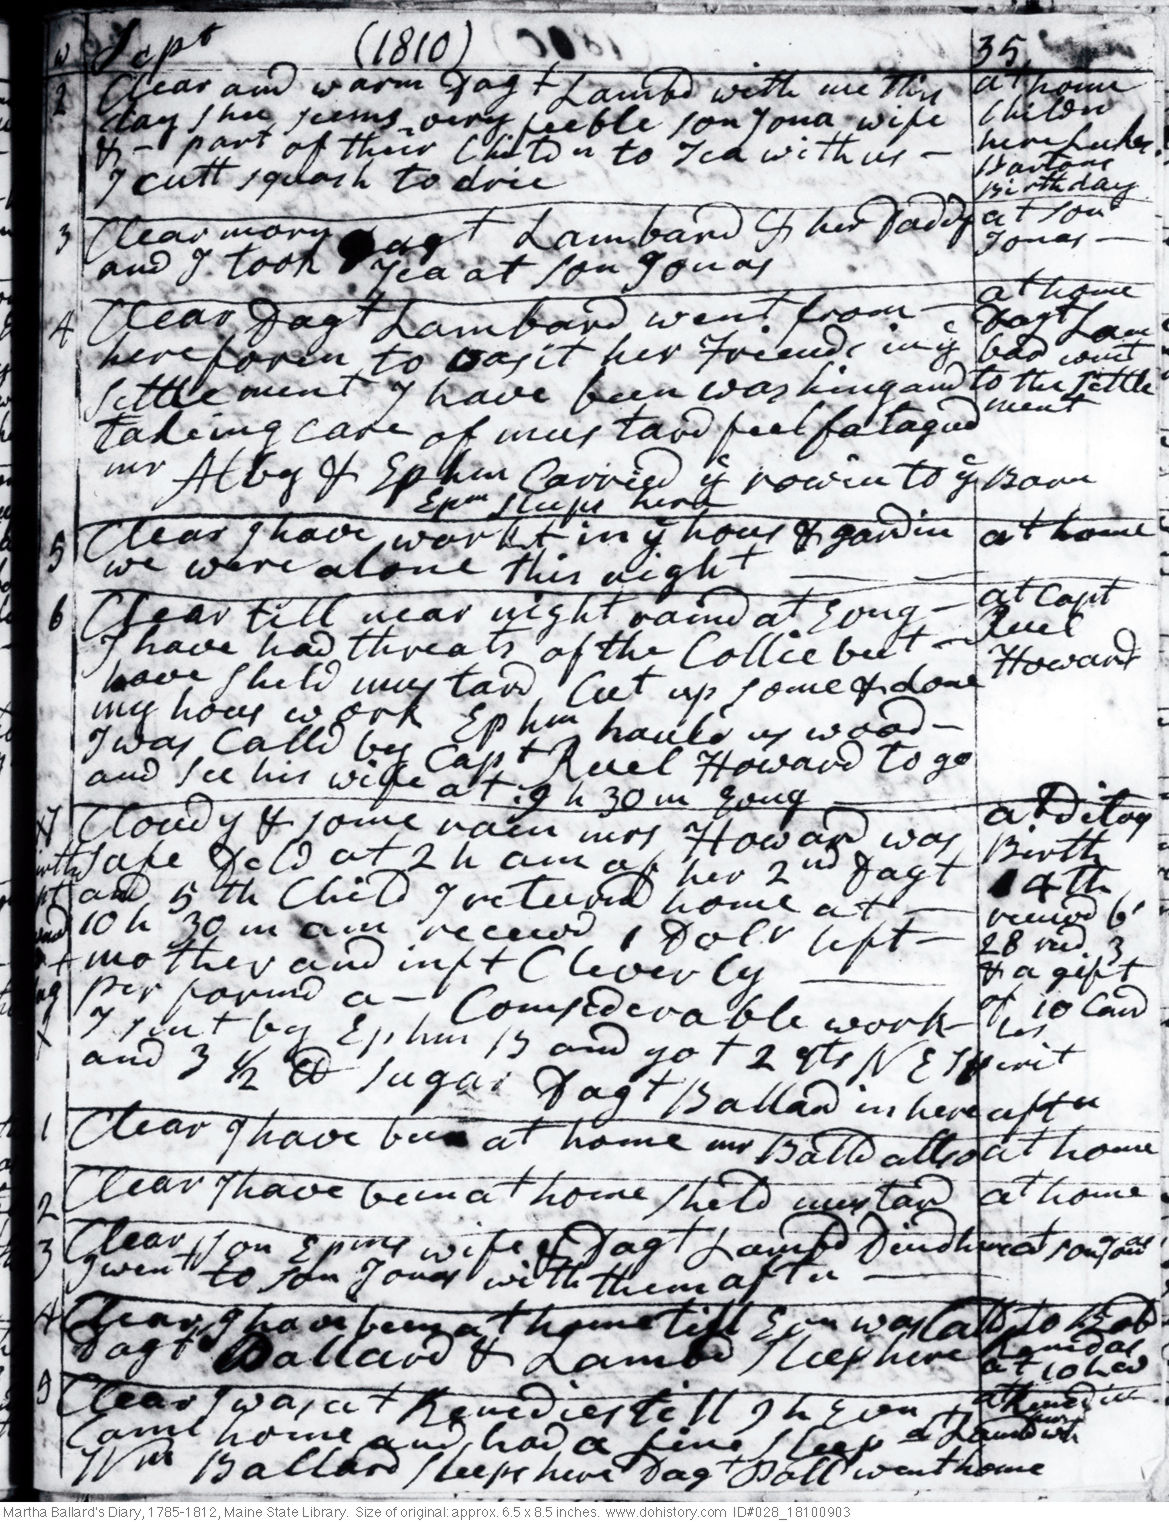 w Sept (1810) 35
2 Clear and warm Dagt Lambd with me this
day shee seems very feeble son Jona wife
& - part of their Childn to Tea with us -
I cutt squash to drie
at home
Childn
here Luke
Bartons
Birthday
3 Clear morn Dagt Lambard & her Dady
and I took Tea at son Jonas
at son
Jonas -
4 Clear Dagt Lambard went from -
here foren to vasit her Friends in ÿ
settlement I have been washing and
takeing care of mustard feel fatagud
mr Alby & Ephm Carried ÿ rowin to ÿ Barn
Epm sleeps here
at home
Dagt Lam
bad went
to the settle
ment
5 Clear I have workt in ÿ hous & gardin
we were alone this night
at home
6 Clear till near night raind at Evng -
I have had threats of the Collic but -
have sheld mustard Cut up some & done
my hous work Ephm hauld us wood -
I was Calld by Capt Ruel Howard to go
and see his wife at 9 h 30 m Evng
at Capt
Ruel
Howards
7 Cloudy & some rain mrs Howard was
safe Deld at 2 h am of her 2nd Dagt
and 5th Child I returnd home at -
10 h 30 m am receivd 1 Dolr left -
mother and inft Cleverly
per formd a - Considerable work
I sent by Ephm B and got 2 qts N E Spirit
and 3 1/2 lb sugar Dagt Ballard in here aftn
at ditoy
Birth
14th
receivd 6/
28 rcd 3
& a gift
of 10 Cand
les
1 Clear I have been at home mr Balld allso
at home
2 Clear I have been at home sheld mustard
at home
3 Clear son Epms wife & Dagt Lambd Dind here
I went to son Jonas with them aftn
at son Jonas
4 Clear I have been at home till Evn was Calld to Bob
Dagt Ballard & Lambd sleep here
Kenedas
at 10 h Ev
5 Clear I was at Kenedies till 9 h Evn
Came home and had a fine sleep Lambd wk
Wm Ballard sleeps here Dagt Ball went home
at Kenedies